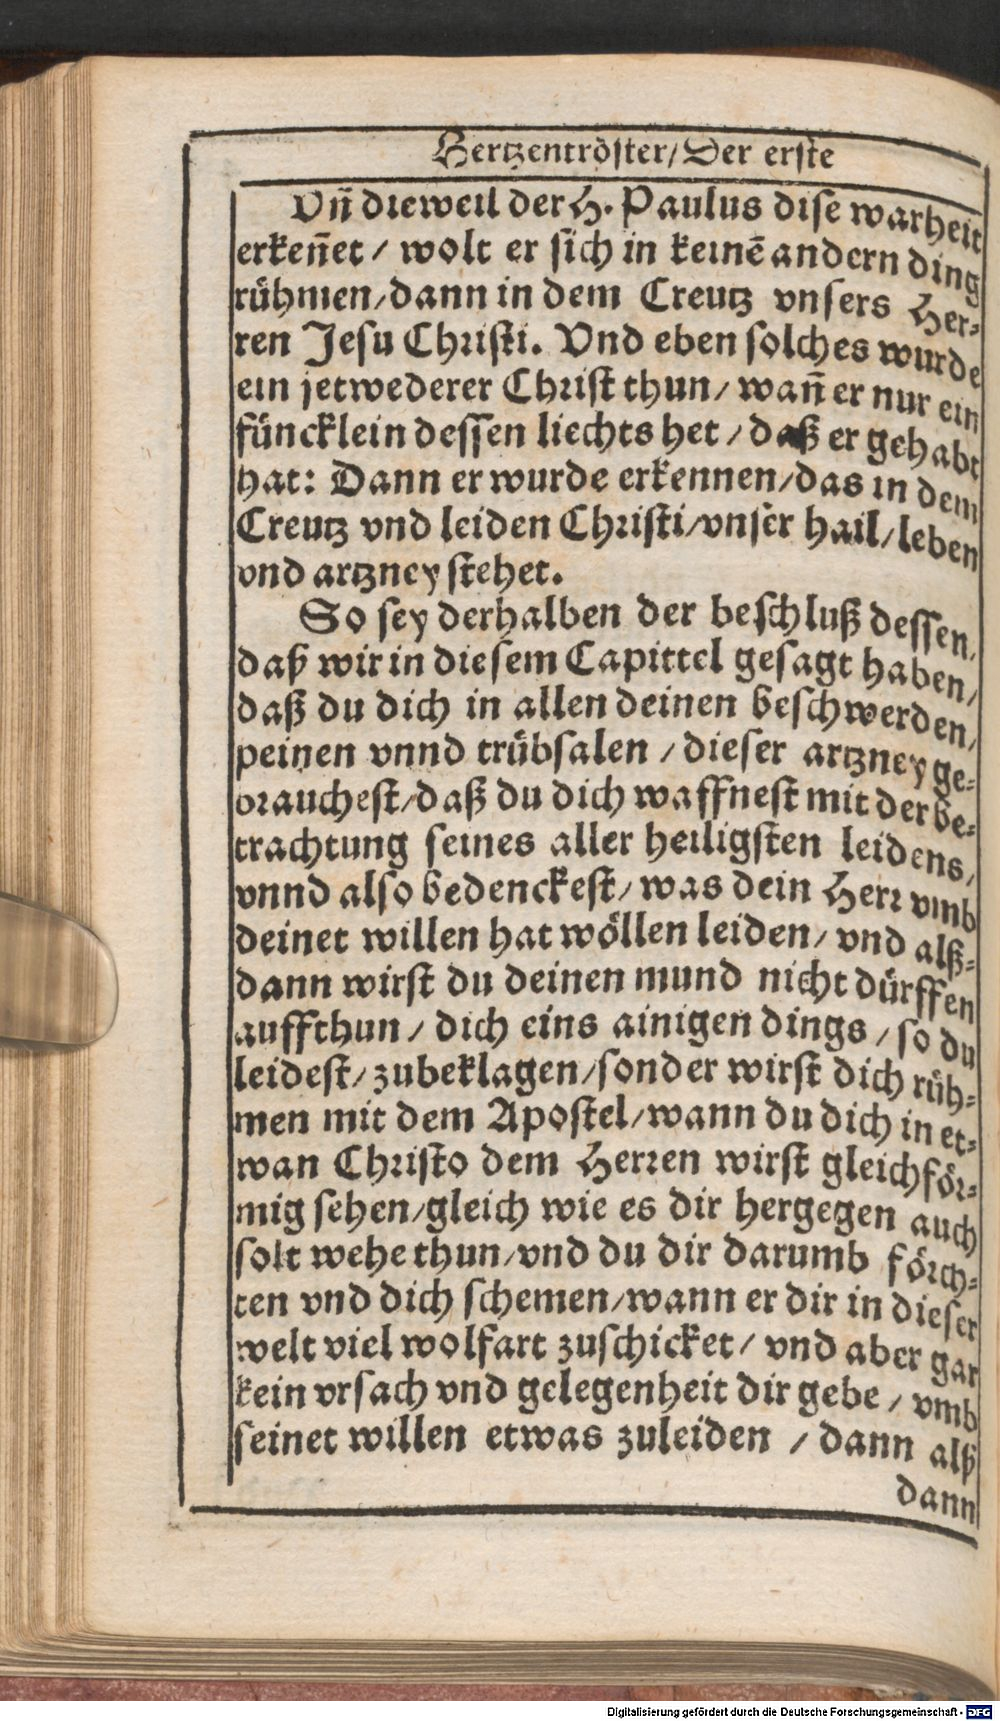 Hertzentröster/Der erste
Vñ dieweil der H. Paulus dise warheit
erkeñet / wolt er sich in keinē andern ding
rühmen/dann in dem Creutz vnsers Her-
ren Jesu Christi. Vnd eben solches wurde
ein jetwederer Christ thun/ wañ er nur ein
füncklein dessen liechts het / daß er gehabt
hat: Dann er wurde erkennen/das in dem
Creutz vnd leiden Christi/vnser hail/leben
vnd artzney stehet.
So sey derhalben der beschluß dessen,
daß wir in diesem Capittel gesagt haben/
daß du dich in allen deinen beschwerden/
peinen vnnd trübsalen / dieser artzney ge-
brauchest/daß du dich waffnest mit der be-
trachtung seines aller heiligsten leidens/
vnnd also bedenckest/ was dein Herr vmb
deinet willen hat wöllen leiden/ vnd alß-
dann wirst du deinen mund nicht dürffen
auffthun/ dich eins ainigen dings / so du
leidest/ zubeklagen/sonder wirst dich rüh-
men mit dem Apostel/wann du dich in et-
wan Christo dem Herren wirst gleichför-
mig sehen/gleich wie es dir hergegen auch
solt wehe thun/vnd du dir darumb förch-
ten vnd dich schemen/wann er dir in dieser
welt viel wolfart zuschicket/ vnd aber gar
kein vrsach vnd gelegenheit dir gebe / vmb
seinet willen etwas zuleiden / dann alß
dann
Digitalisierung gefördert durch die Deutsche Forschungsgemeinschaft - DFG